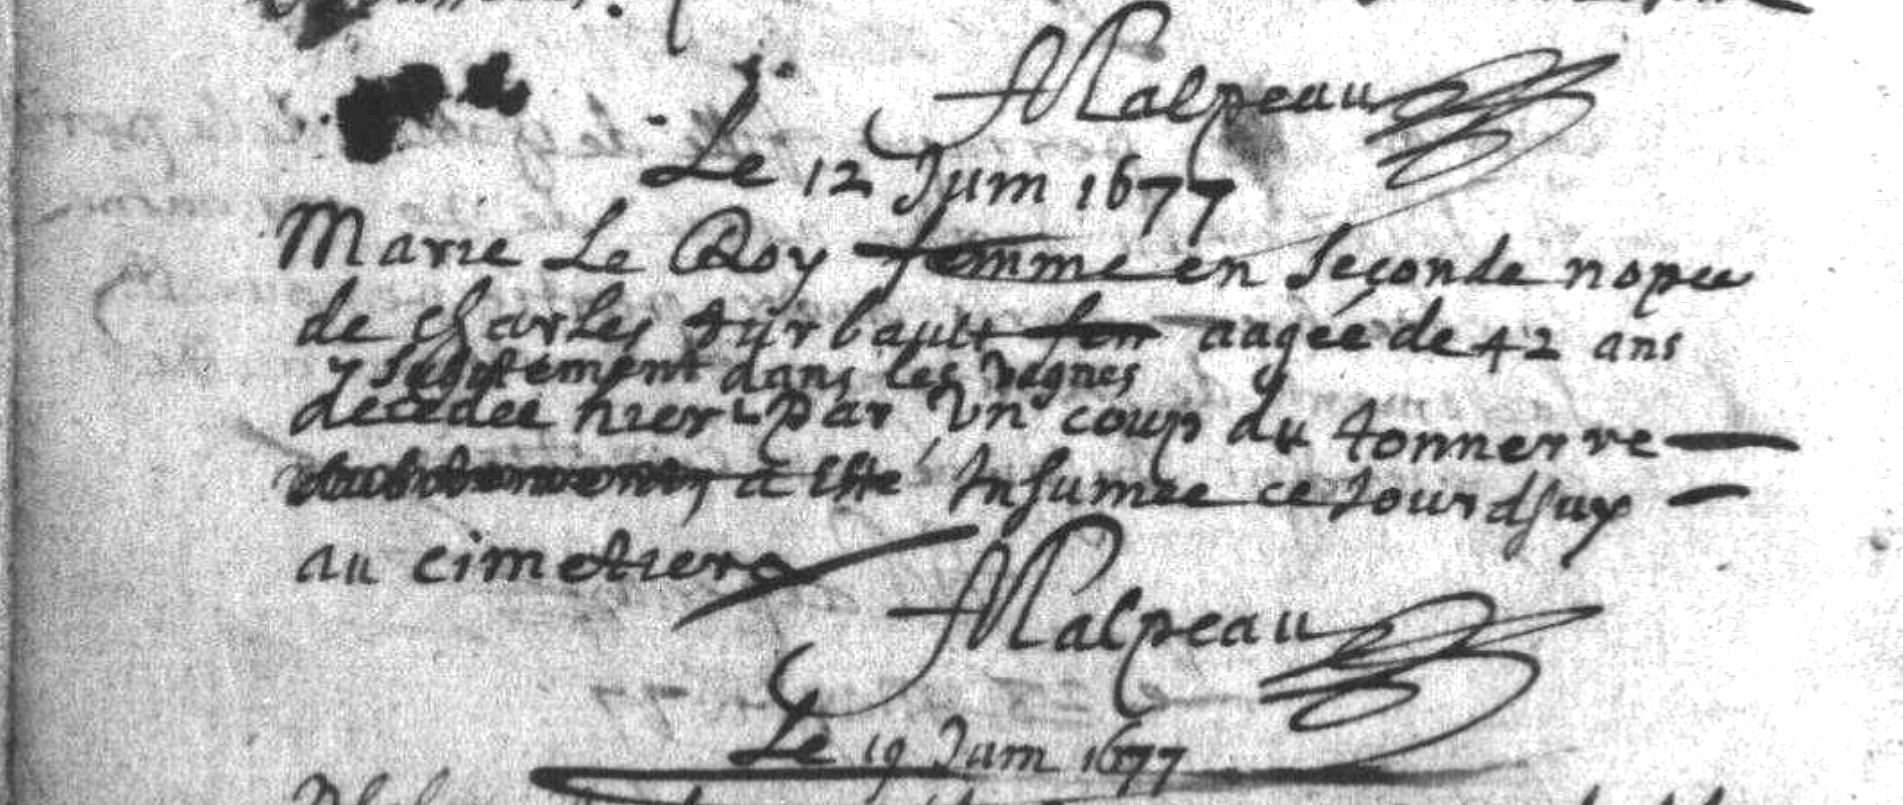 Malpeau
Le 12 Juin 1677
Marie Le Roy femme en seconde nopce
de Charles turbault aagée de 42 ans
subitement dans les vignes
decedee hier par un coup du tonnerre
a esté Inhumee ce Jourdhuy
au cimetiere
Malpeau
Le 19 Juin 1677